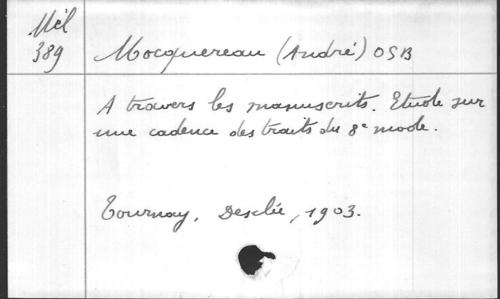 Mél
389
Mocquereau (André) OSB
A travers les manuscrits. Etude sur
une cadence des traits du 8e mode.
Tournay, Desclée, 1903.